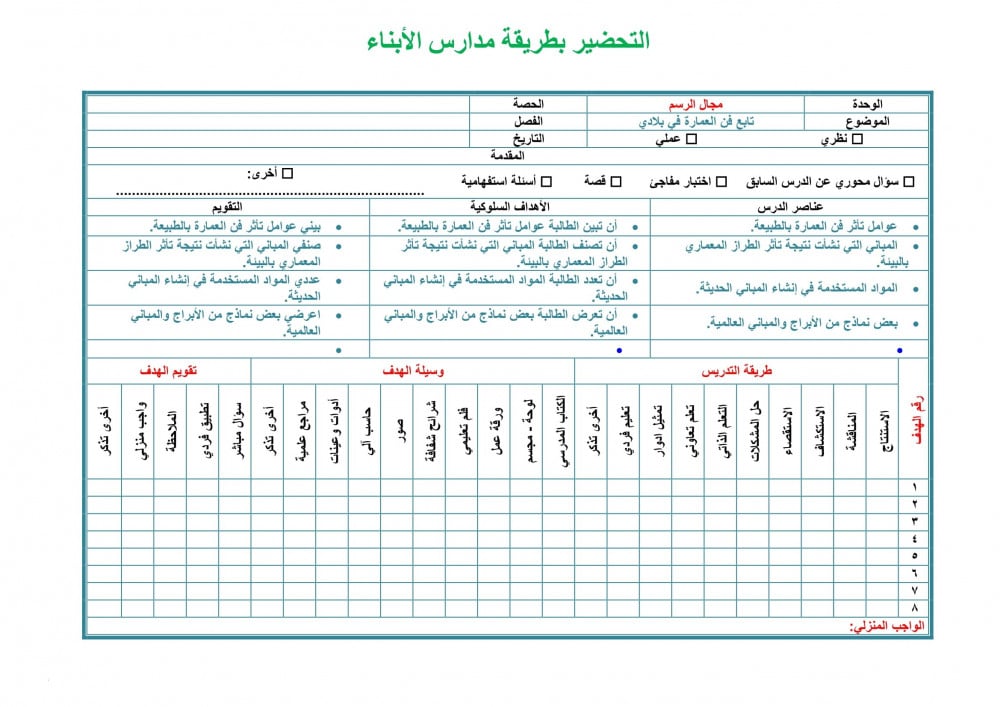 التحضير بطريقة مدارس الأبناء
الوحدة مجال الرسم الحصة
الموضوع تابع فن العمارة في بلادي الفصل
□ نظري □ عملي التاريخ
المقدمة
□ سؤال محوري عن الدرس السابق □ اختبار مفاجئ □ قصة □ أسئلة استفهامية □ أخرى:
................................................................
عناصر الدرس الأهداف السلوكية التقويم
• عوامل تأثر فن العمارة بالطبيعة. • أن تبين الطالبة عوامل تأثر فن العمارة بالطبيعة. • بيني عوامل تأثر فن العمارة بالطبيعة.
• المباني التي نشأت نتيجة تأثر الطراز المعماري • أن تصنف الطالبة المباني التي نشأت نتيجة تأثر • صنفي المباني التي نشأت نتيجة تأثر الطراز
بالبيئة. الطراز المعماري بالبيئة. المعماري بالبيئة.
• المواد المستخدمة في إنشاء المباني الحديثة. • أن تعدد الطالبة المواد المستخدمة في إنشاء المباني • عددي المواد المستخدمة في إنشاء المباني
الحديثة. الحديثة.
• بعض نماذج من الأبراج والمباني العالمية. • أن تعرض الطالبة بعض نماذج من الأبراج والمباني • اعرضي بعض نماذج من الأبراج والمباني
العالمية. العالمية.
• • •
رقم الهدف طريقة التدريس وسيلة الهدف تقويم الهدف
الاستنتاج
المناقشة
الاستكشاف
الاستقصاء
حل المشكلات
التعلم الذاتي
تعلم تعاوني
تمثيل ادوار
تعليم فردي
أخرى تذكر
الكتاب المدرسي
لوحة - مجسم
ورقة عمل
فلم تعليمي
شرائح شفافة
صور
حاسب آلي
أدوات وعينات
مراجع علمية
أخرى تذكر
سؤال مباشر
تطبيق فردي
الملاحظة
واجب منزلي
أخرى تذكر
١
٢
٣
٤
٥
٦
٧
٨
الواجب المنزلي: